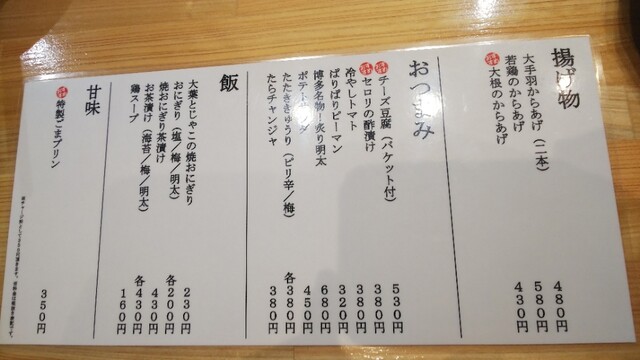 揚げ物
大手羽からあげ（二本） 480円
若鶏のからあげ 580円
大根のからあげ 430円
おつまみ
チーズ豆腐（バケット付） 530円
セロリの酢漬け 380円
冷やしトマト 380円
ぱりぱりピーマン 320円
博多名物！炙り明太 680円
ポテトサラダ 450円
たたききゅうり（ピリ辛／梅） 各380円
たらチャンジャ 380円
飯
大葉とじゃこの焼おにぎり 230円
おにぎり（塩／梅／明太） 各200円
焼おにぎり茶漬け 430円
お茶漬け（海苔／梅／明太） 各430円
鶏スープ 160円
甘味
特製ごまプリン 350円